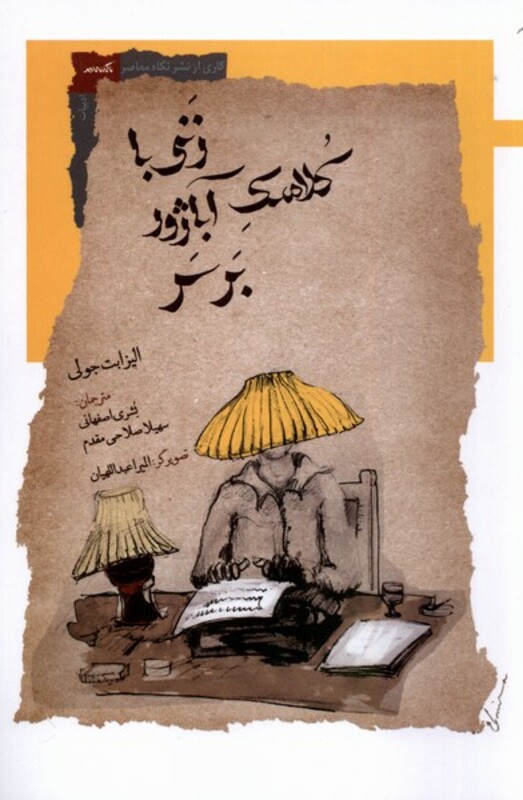 کاری از نشر نگاه معاصر
ادبیات
زنی با
کُلاهکِ آباژور
بَر سَر
الیزابت جولی
مترجمان:
بُشری اصفهانی
سهیلا صلاحی مقدم
تصویرگر: المیرا عبداللهیان